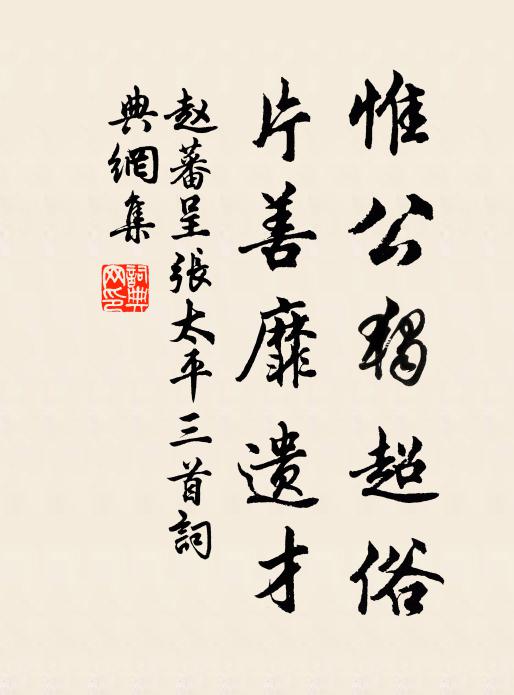 惟公獨超俗
片善靡遺才
赵蕃呈張太平三首詞
典網集
詞典網印